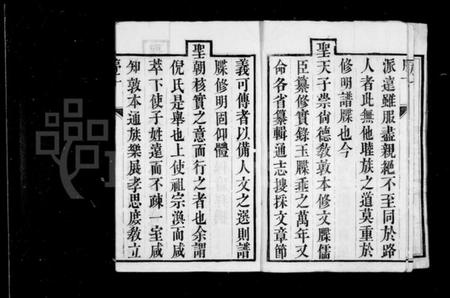 派遠雖服盡親絕不至同於路
人者此無他睦族之道莫重於
修明譜牒也今
聖天子崇尚德教敦本修文牒儒
臣纂修實錄玉牒垂之萬年又
命各省纂輯通志搜採文章節
義可傳者以備人文之選則譜
牒修明固仰體
聖朝核實之意而行之者也余謂
倪氏是舉也上使祖宗渙而咸
萃下使子姓遠而不疎一室咸
知敦本通族樂展孝思庶教立